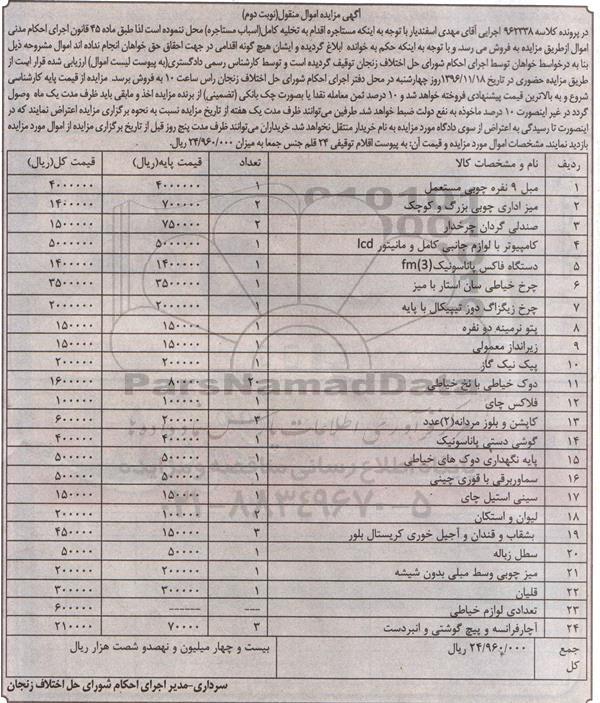 آگهی مزایده اموال منقول(نوبت دوم)
در پرونده کلاسه ۹۶۲۳۳۸ اجرایی آقای مهدی اسفندیار با توجه به اینکه مستاجره اقدام به تخلیه کامل(اسباب مستاجره) محل ننموده است لذا طبق ماده ۴۵ قانون اجرای احکام مدنی
اموال ازطریق مزایده به فروش می رسد. و با توجه به اینکه حکم به خوانده ابلاغ گردیده و ایشان هیچ گونه اقدامی در جهت احقاق حق خواهان انجام نداده اند اموال مشروحه ذیل
بنا به درخواسط خواهان توسط اجرای احکام شورای حل اختلاف زنجان توقیف گردیده است و توسط کارشناس رسمی دادگستری(به پیوست لیست اموال) ارزیابی شده قرار است از
طریق مزایده حضوری در تاریخ ۱۳۹۶/۱۱/۱۸روز چهارشنبه در محل دفتر اجرای احکام شورای حل اختلاف زنجان راس ساعت ۱۰ به فروش برسد. مزایده از قیمت پایه کارشناسی
شروع و به بالاترین قیمت پیشنهادی فروخته خواهد شد و ۱۰ درصد ثمن معامله نقدا یا بصورت چک بانکی (تضمینی) از برنده مزایده اخذ و مابقی باید ظرف مدت یک ماه وصول
گردد در غیر اینصورت ۱۰ درصد ماخوذه به نفع دولت ضبط خواهد شد. طرفین می‌توانند ظرف مدت یک هفته از تاریخ مزایده نسبت به نحوه برگزاری مزایده اعتراض نمایند که در
اینصورت تا رسیدگی به اعتراض از سوی دادگاه مورد مزایده به نام خریدار منتقل نخواهد شد. خریداران می‌توانند ظرف مدت پنج روز قبل از تاریخ برگزاری مزایده از اموال مورد مزایده
بازدید نمایند. مشخصات اموال مورد مزایده و قیمت آن: به پیوست اقلام توقیفی ۲۴ قلم جنس جمعا به میزان ۲۴/۹۶۰/۰۰۰ ریال
ردیف نام و مشخصات کالا تعداد قیمت پایه(ریال) قیمت کل(ریال)
۱ مبل ۹ نفره چوبی مستعمل ۱ ۴۰۰۰۰۰۰ ۴۰۰۰۰۰۰
۲ میز اداری چوبی بزرگ و کوچک ۲ ۷۰۰۰۰۰ ۱۴۰۰۰۰۰
۳ صندلی گردان چرخدار ۲ ۷۵۰۰۰۰ ۱۵۰۰۰۰۰
۴ کامپیوتر با لوازم جانبی کامل و مانیتور lcd ۱ ۵۰۰۰۰۰۰ ۵۰۰۰۰۰۰
۵ دستگاه فاکس پاناسونیک(3)fm ۱ ۱۴۰۰۰۰۰ ۱۴۰۰۰۰۰
۶ چرخ خیاطی سان استار با میز ۱ ۳۵۰۰۰۰۰ ۳۵۰۰۰۰۰
۷ چرخ زیگزاگ دوز تیپیکال با پایه ۱ ۲۰۰۰۰۰۰ ۲۰۰۰۰۰۰
۸ پتو نرمینه دو نفره ۱ ۱۵۰۰۰۰ ۱۵۰۰۰۰
۹ زیرانداز معمولی ۱ ۱۵۰۰۰۰ ۱۵۰۰۰۰
۱۰ پیک نیک گاز ۱ ۲۰۰۰۰۰ ۲۰۰۰۰۰
۱۱ دوک خیاطی با نخ خیاطی ۱۶۰۰۰۰
۱۲ فلاکس چای ۱ ۱۰۰۰۰۰ ۱۰۰۰۰۰
۱۳ کاپشن و بلوز مردانه(۲)عدد ۳ ۲۰۰۰۰۰ ۶۰۰۰۰۰
۱۴ گوشی دستی پاناسونیک ۱ ۴۰۰۰۰۰ ۴۰۰۰۰۰
۱۵ پایه نگهداری دوک های خیاطی ۱ ۵۰۰۰۰۰ ۵۰۰۰۰۰
۱۶ سماوربرقی با قوری چینی ۱ ۵۰۰۰۰۰ ۵۰۰۰۰۰
۱۷ سینی استیل چای ۱ ۱۵۰۰۰۰ ۱۵۰۰۰۰
۱۸ لیوان و استکان ۲ ۱۰۰۰۰۰ ۲۰۰۰۰۰
۱۹ بشقاب و قندان و آجیل خوری کریستال بلور ۳ ۱۵۰۰۰۰ ۴۵۰۰۰۰
۲۰ سطل زباله ۱ ۵۰۰۰۰ ۵۰۰۰۰
۲۱ میز چوبی وسط مبلی بدون شیشه ۱ ۲۰۰۰۰۰ ۲۰۰۰۰۰
۲۲ قلیان ۱ ۳۰۰۰۰۰ ۳۰۰۰۰۰
۲۳ تعدادی لوازم خیاطی ---- ------ ۶۰۰۰۰۰
۲۴ آچارفرانسه و پیچ گوشتی و انبردست ۳ ۷۰۰۰۰ ۲۱۰۰۰۰
جمع کل ۲۴/۹۶۰/۰۰۰ ریال بیست و چهار میلیون و نهصدو شصت هزار ریال
سرداری-مدیر اجرای احکام شورای حل اختلاف زنجان
ParsNamadData